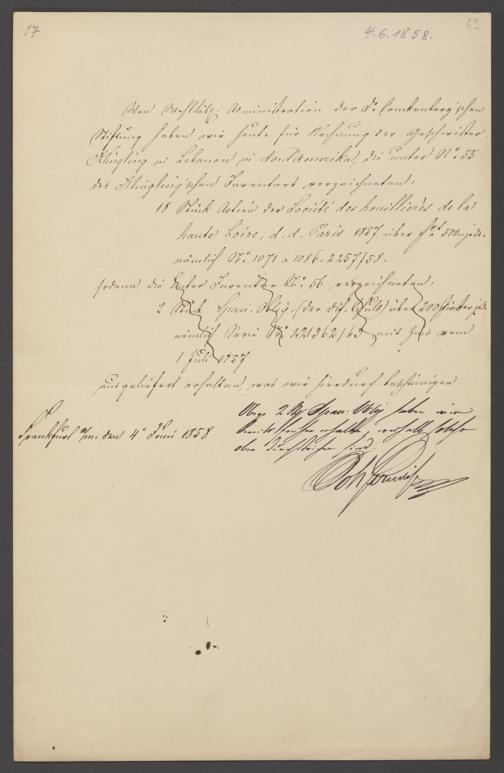 17
4.6.1858.
59
Von Wohllöbl. Administration der Dr. Senckenberg'schen
Stiftung haben wir heute für Rechnung der Geschwister
Klingling in Lebanon in Nord Amerika, die unter No. 55
des Klingling'schen Inventars verzeichneten,
18 Stück Actien der Société des houillières de la
haute Loire, d. d. Paris 1857 über frs 500 jede
nämlich No. 1071 a 1086. 2257/58.
sodann die unter Inventar No. 56 verzeichneten,
2 Stück Span. Oblig. (der dif. Schuld) über 200 Piaster jede
nämlich Serie No 221362/63 mit Zins vom
1 Juli 1857
ausgeliefert erhalten, was wir hierdurch bescheinigen
Frankfurt a/m. den 4n Juni 1858
Obige 2 Span: Oblig haben wir
bereits früher erhalten, weshalb solche
oben durchstrichen sind.